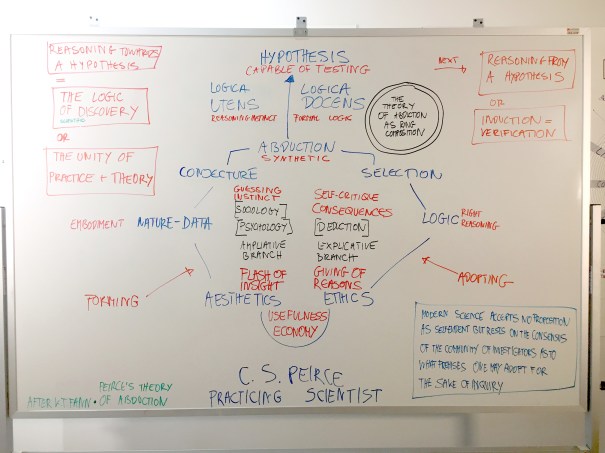 REASONING TOWARDS
A HYPOTHESIS
=
THE LOGIC
OF DISCOVERY
OR
THE UNITY OF
PRACTICE + THEORY
HYPOTHESIS
CAPABLE OF TESTING
LOGICA
UTENS
REASONING INSTINCT
LOGICA
DOCENS
FORMAL LOGIC
THE
THEORY
OF ABDUCTION
AS RING
COMPOSITION
NEXT
REASONING FROM
A HYPOTHESIS
OR
INDUCTION =
VERIFICATION
ABDUCTION
SYNTHETIC
CONJECTURE
SELECTION
GUESSING
INSTINCT
[SOCIOLOGY]
[PSYCHOLOGY]
AMPLIATIVE
BRANCH
FLASH OF
INSIGHT
SELF-CRITIQUE
CONSEQUENCES
[DEDUCTION]
EXPLICATIVE
BRANCH
GIVING OF
REASONS
EMBODIMENT NATURE-DATA
LOGIC RIGHT
REASONING
FORMING
ADOPTING
AESTHETICS
ETHICS
USEFULNESS
ECONOMY
MODERN SCIENCE ACCEPTS NO PROPOSITION
AS SELFEVIDENT BUT RESTS ON THE CONSENSUS
OF THE COMMUNITY OF INVESTIGATORS AS TO
WHAT PREMISES ONE MAY ADOPT FOR
THE SAKE OF INQUIRY
C. S. PEIRCE
PRACTICING SCIENTIST
PEIRCE'S THEORY
AFTER K.T. FANN • OF ABDUCTION